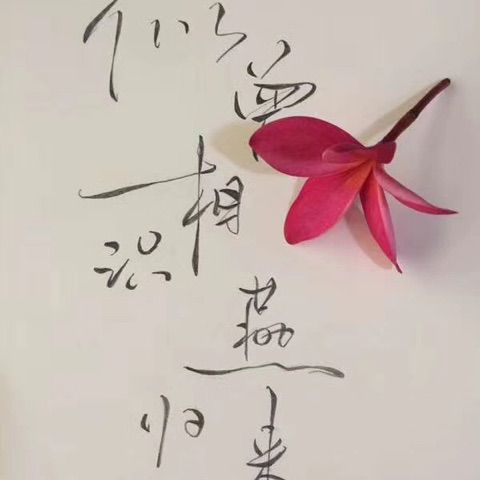 似曾
相
识
燕
归来